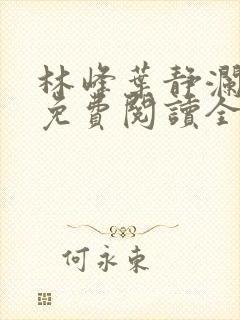 林峰葉靜瀾
免費閱讀全
何永東